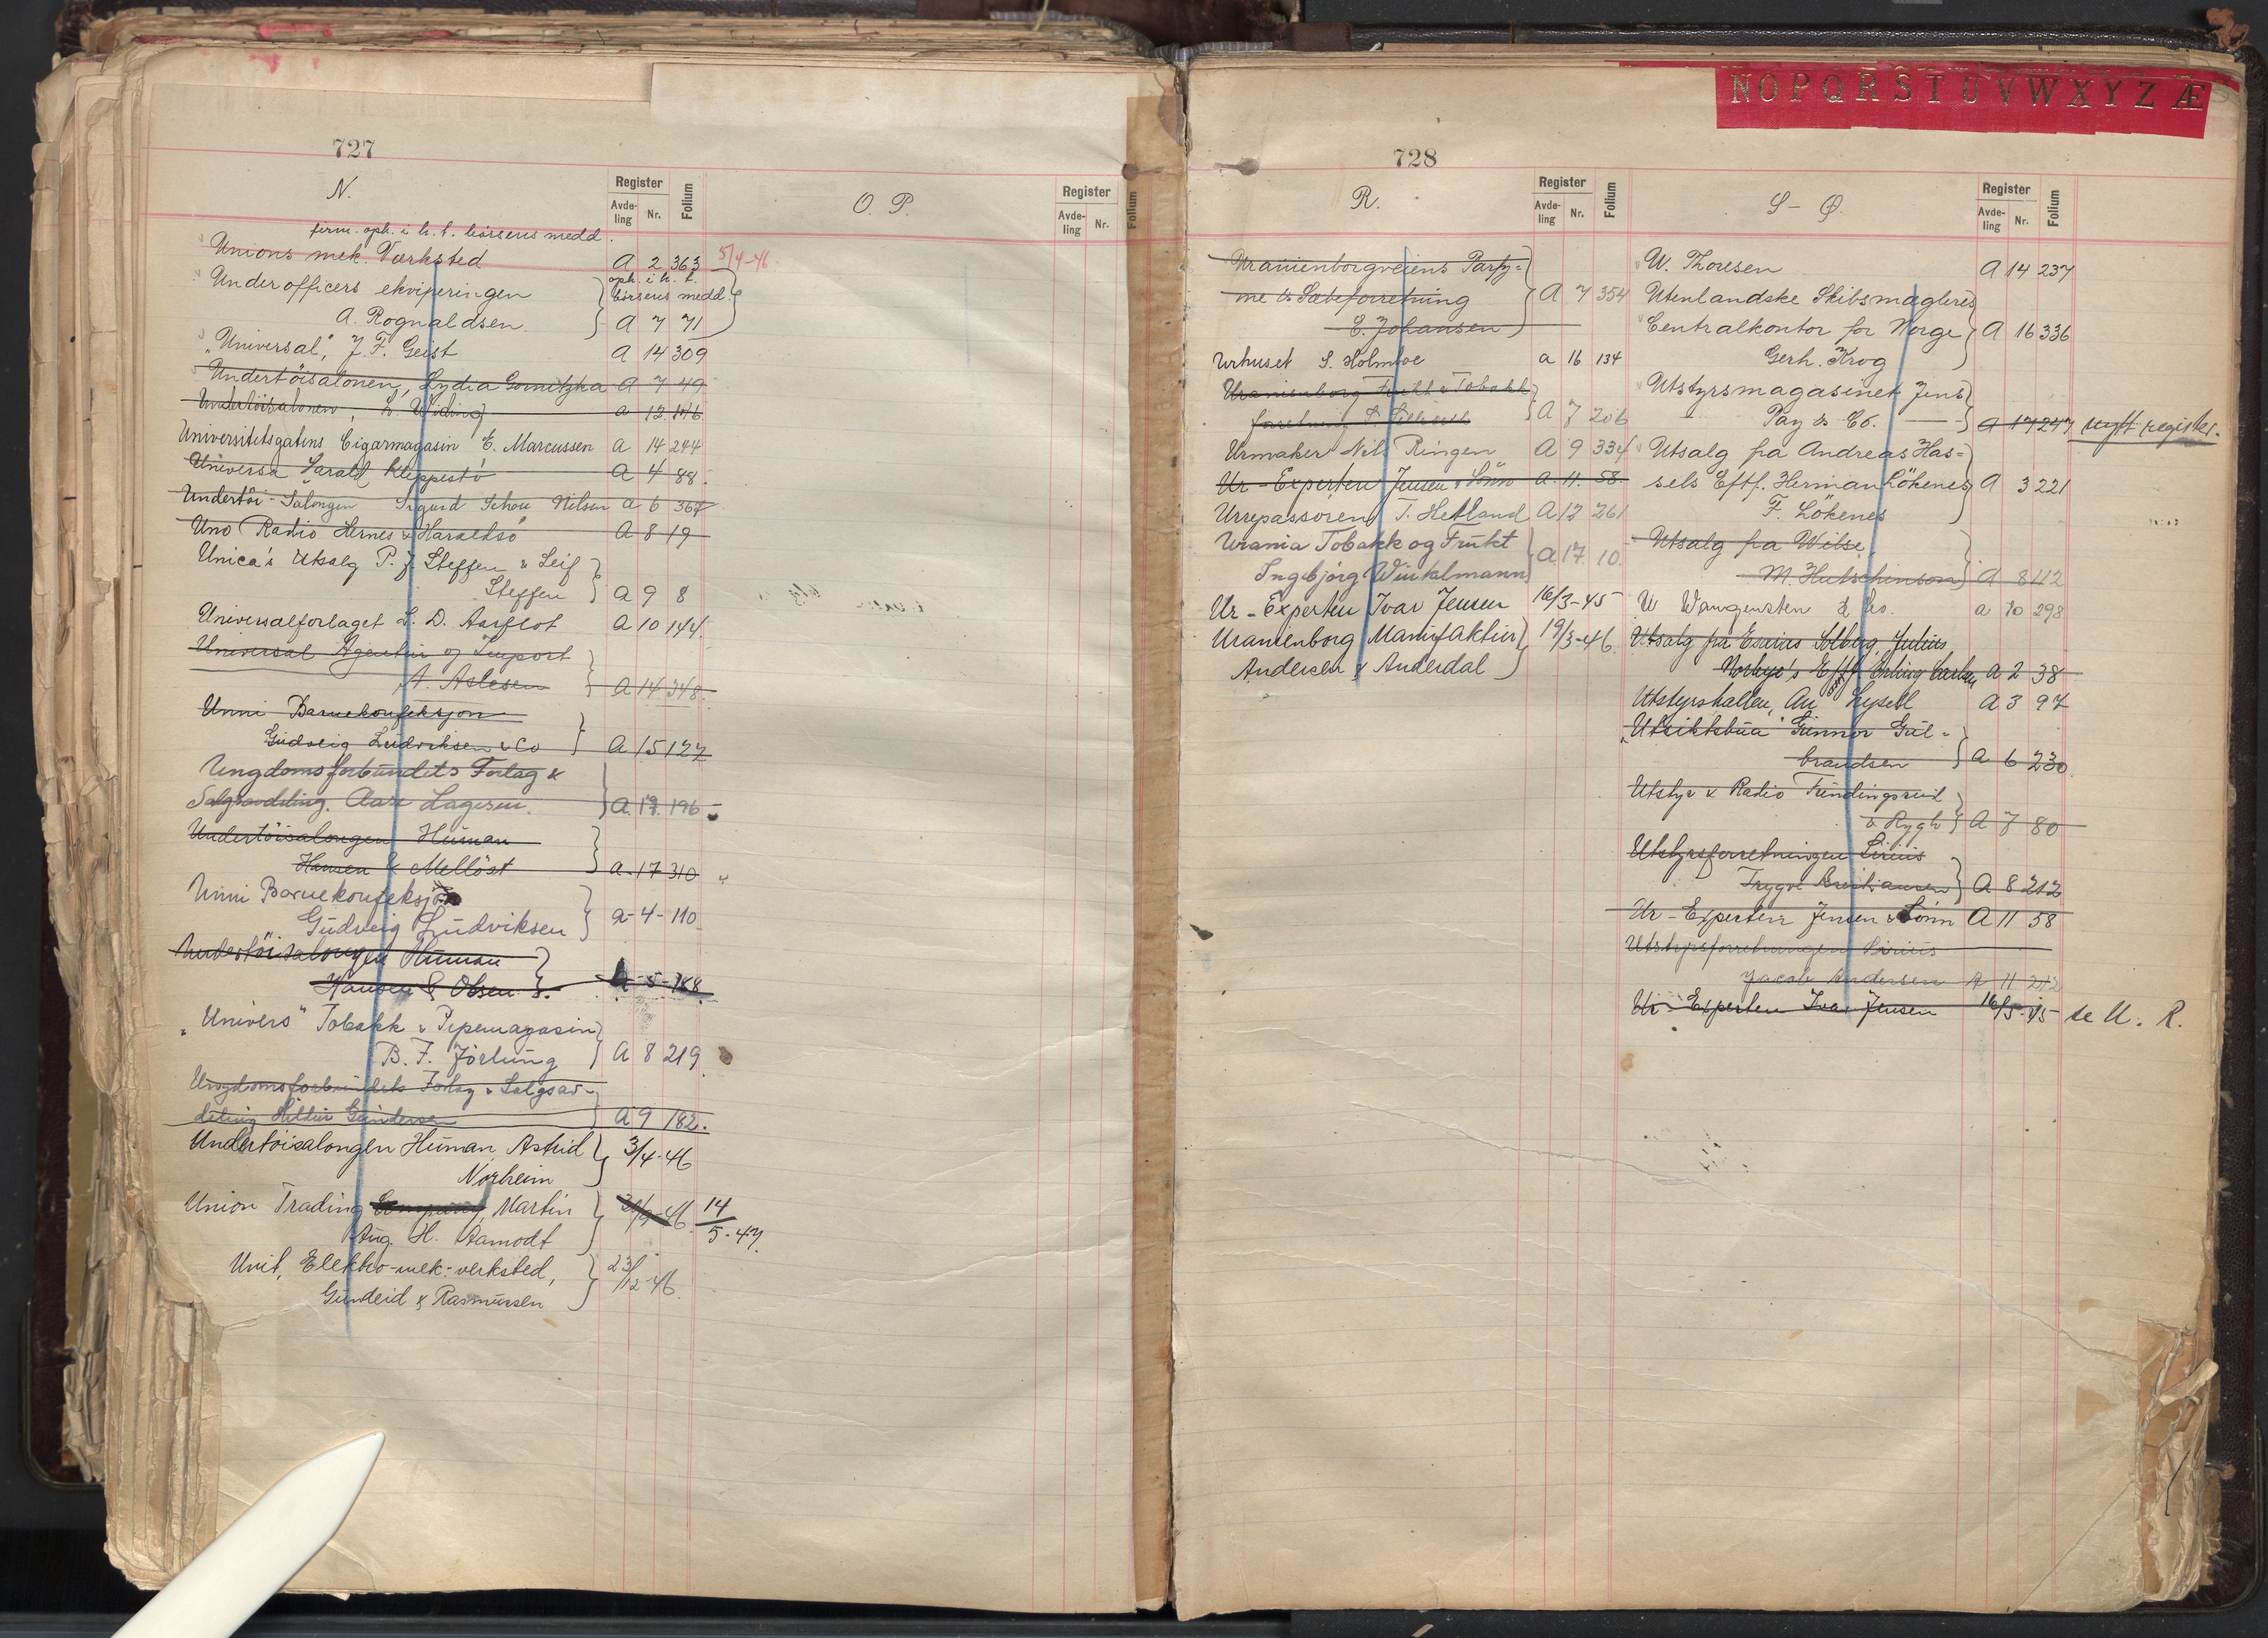 727
N.
Register
Avde-
ling
Nr.
Folium
O. P.
Register
Avde-
ling
Nr.
Folium
firm. oph. i h. t. börsens medd.
Unions mek. Værksted A 2 363 5/4-46
Underofficers ekviperingen oph. i h. t.
börsens medd.
A. Rognaldsen A 7 71
"Universal", J. F. Geist A 14 309
Undertöisalonen, Lydia Gornitzka A 7 49
Undertöisalonen, L. Widing a 12 106
Universitetsgatens Cigarmagasin E. Marcussen a 14 244
Universa Harald Kleppestö A 4 88
Undertöi-Salongen Sigurd Schou Nilsen a 6 367
Uno Radio Hernes & Haraldsö A 8 19
Unica's Utsalg P. J. Steffen & Leif
Steffen A 9 8
Universalforlaget L. D. Aarflot A 10 144
Universal Agentur og Import
A. Aslesen A 14 348
Unni Barnekonfeksjon
Gudveig Ludviksen & Co A 15 127
Ungdomsforbundets Forlag &
Salgsavdeling. Aase Lagesen. A. 17. 196
Undertöisalongen Human
Hansen & Mellöst a 17 310
Unni Barnekonfeksjon
Gudveig Ludviksen a-4-110
Undertöisalongen Human
Hansen & Olsen A-5-188
"Univers" Tobakk & Pipemagasin
B. F. Jörlung A 8 219
Ungdomsforbundets Forlag & Salgsav-
deling Hildur Gundersen A 9 182.
Undertöisalongen Human, Astrid 3/4-46
Norheim
Union Trading Company, Martin 14
Aug. H. Aamodt 5-47
Unit, Elektro-mek.-verksted, 23/
12-46
Gundeid & Rasmussen
728
N O P Q R S T U V W X Y Z Æ
R.
Register
Avde-
ling
Nr.
Folium
S - Ø.
Register
Avde-
ling
Nr.
Folium
Uranienborgveiens Parfy-
me & Sæbeforretning A 7 354
E. Johansen
Urhuset S. Holmboe a 16 134
Uranienborg Frukt & Tobakk
forretning A 7 206
Urmaker Nils Ringen A 9 334
Ur-Experten Jensen & Sönn a. 11. 58.
Urrepassoren T. Hetland A 12 261
Urania Tobakk og Frukt A 17. 10.
Ingebjörg Winkelmann
Ur-Experten Ivar Jensen 16/3-45
Uranienborg Manufaktur 19/3-46
Andersen & Anderdal
W. Thoresen A 14 237
Utenlandske Skibsmægleres
Centralkontor for Norge A 16 336
Gerh. Krog
Utstyrsmagasinet Jens
Pay & Co. A 17 247 nytt register.
Utsalg fra Andreas Has-
sels Eftf. Herman Lökenes A 3 221
F. Lökenes
Utsalg fra Wilse
M. Hutschinson A 8 112
U Wangensten & Co. a 10 298
Utsalg fra Einar Solberg, Julius
Norbye's Eftf. Erling Carlsen a 2 38
Utstyrshallen, Lysell A 3 97
"Utsiktsbua" Gunnor Gul-
brandsen a 6 230
Utstyr & Radio Fundingsrud
& Rygh A 7 80
Utstyrsforretningen Sirius
Trygve Kristiansen A 8 212
Ur-Experten Jensen & Sönn A 11 58
Utstyrsforretningen Sirius
Jacob Andersen A 11 212
Ur-Experten Ivar Jensen 16/3-45 se U. R.